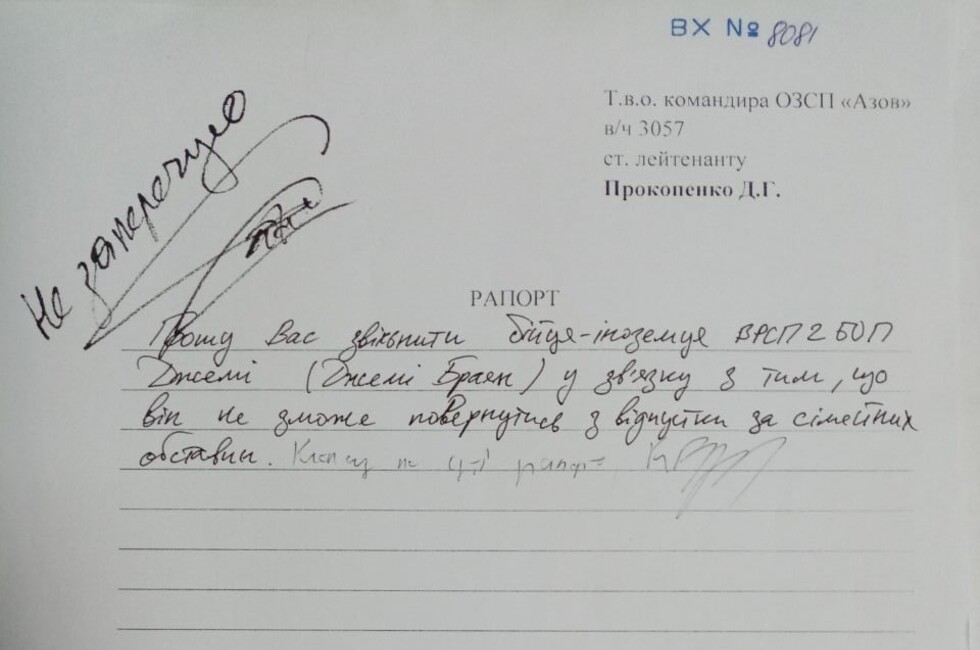 ВХ № 8081
Т.в.о. командира ОЗСП «Азов»
в/ч 3057
ст. лейтенанту
Прокопенко Д.Г.
Не заперечую
РАПОРТ
Прошу Вас звільнити бійця-іноземця ВРСП 2 БОП
Джемі (Джемі Браян) у зв'язку з тим, що
він не зможе повернутись з відпустки за сімейних
обставин.